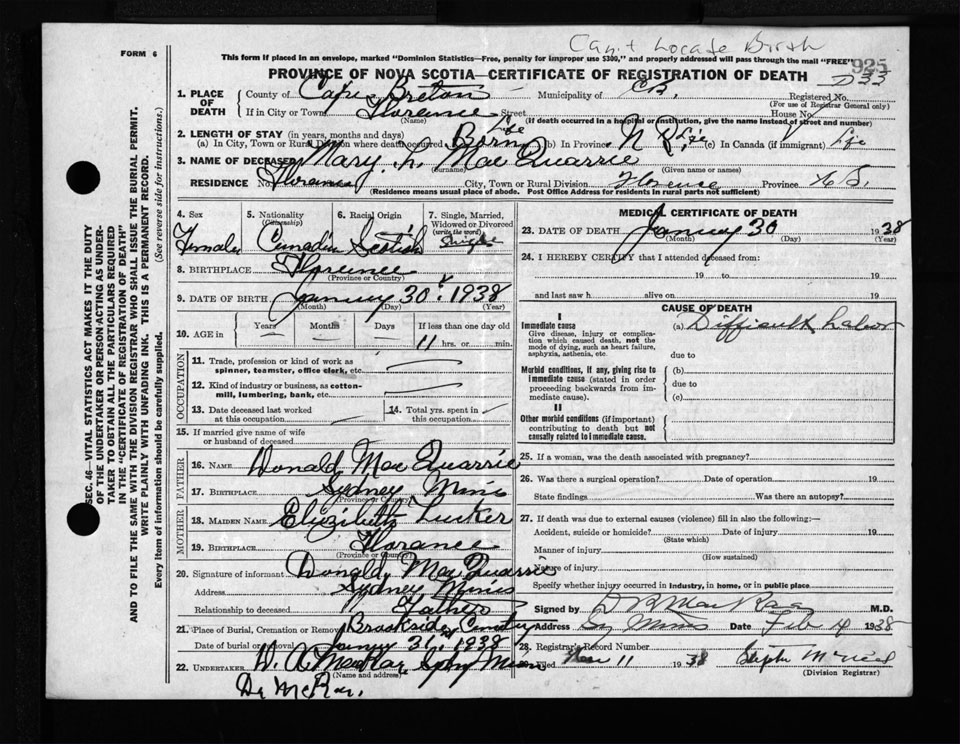 Can't Locate Birth
FORM 6
This form if placed in an envelope, marked "Dominion Statistics—Free, penalty for improper use $300," and properly addressed will pass through the mail "FREE"
925
PROVINCE OF NOVA SCOTIA—CERTIFICATE OF REGISTRATION OF DEATH
D33
1. PLACE OF DEATH
County of Cape Breton Municipality of C.B. Registered No.
(For use of Registrar General only)
If in City or Town Florence Street House No.
(Name) (If death occurred in a hospital or institution, give the name instead of street and number)
2. LENGTH OF STAY (in years, months and days)
(a) In City, Town or Rural Division where death occurred Born Life (b) In Province N S Life (c) In Canada (if immigrant) Life
3. NAME OF DECEASED Mary. L. MacQuarrie
(Surname) (Given name or names)
RESIDENCE No. Florence City, Town or Rural Division Florence Province N.S.
(Residence means usual place of abode. Post Office Address for Residents in rural parts not sufficient)
SEC. 46—VITAL STATISTICS ACT MAKES IT THE DUTY
OF THE UNDERTAKER OR PERSON ACTING AS UNDER-
TAKER TO OBTAIN ALL THE PARTICULARS REQUIRED
IN THE "CERTIFICATE OF REGISTRATION OF DEATH"
AND TO FILE THE SAME WITH THE DIVISION REGISTRAR WHO SHALL ISSUE THE BURIAL PERMIT.
WRITE PLAINLY WITH UNFADING INK. THIS IS A PERMANENT RECORD.
Every item of information should be carefully supplied. (See reverse side for instructions.)
4. Sex Female
5. Nationality (Citizenship) Canadian
6. Racial Origin Scotish
7. Single, Married, Widowed or Divorced (write the word) Single
8. BIRTHPLACE Florence
(Province or Country)
9. DATE OF BIRTH January 30 1938
(Month) (Day) (Year)
10. AGE in Years Months Days If less than one day old
11 hrs. or min.
OCCUPATION
11. Trade, profession or kind of work as spinner, teamster, office clerk, etc.
12. Kind of industry or business, as cotton-mill, lumbering, bank, etc.
13. Date deceased last worked at this occupation
14. Total yrs. spent in this occupation
15. If married give name of wife or husband of deceased
FATHER
16. NAME Donald MacQuarrie
17. BIRTHPLACE Sydney Mines
(Province or Country)
MOTHER
18. MAIDEN NAME Elizibeth Tucker
19. BIRTHPLACE Florance
(Province or Country)
20. Signature of informant Donald MacQuarrie
Address Sydney Mines
Relationship to deceased Father
21. Place of Burial, Cremation or Removal Brookside Cemetry
Date of burial or removal January 31. 1938
22. UNDERTAKER
(Name and address)
Dr McRae.
MEDICAL CERTIFICATE OF DEATH
23. DATE OF DEATH January 30 1938
(Month) (Day) (Year)
24. I HEREBY CERTIFY that I attended deceased from:
19 to 19
and last saw h alive on 19
CAUSE OF DEATH
I
Immediate cause
Give disease, injury or complication which caused death, not the mode of dying, such as heart failure, asphyxia, asthenia, etc.
(a) Difficult Labor
due to
Morbid conditions, if any, giving rise to immediate cause (stated in order proceeding backwards from immediate cause).
(b)
due to
(c)
II
Other morbid conditions (if important) contributing to death but not causally related to immediate cause.
25. If a woman, was the death associated with pregnancy?
26. Was there a surgical operation? Date of operation 19
State findings Was there an autopsy?
27. If death was due to external causes (violence) fill in also the following:—
Accident, suicide or homicide? Date of injury 19
(State which)
Manner of injury
(How sustained)
Nature of injury
Specify whether injury occurred in industry, in home, or in public place
Signed by M.D.
Address Sy Mines Date Feb 4 1938
28. Registrar's Record Number
Filed 11 1938
(Division Registrar)